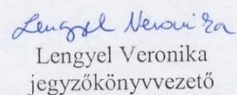 Lengyel Veronika
Lengyel Veronika
jegyzőkönyvvezető